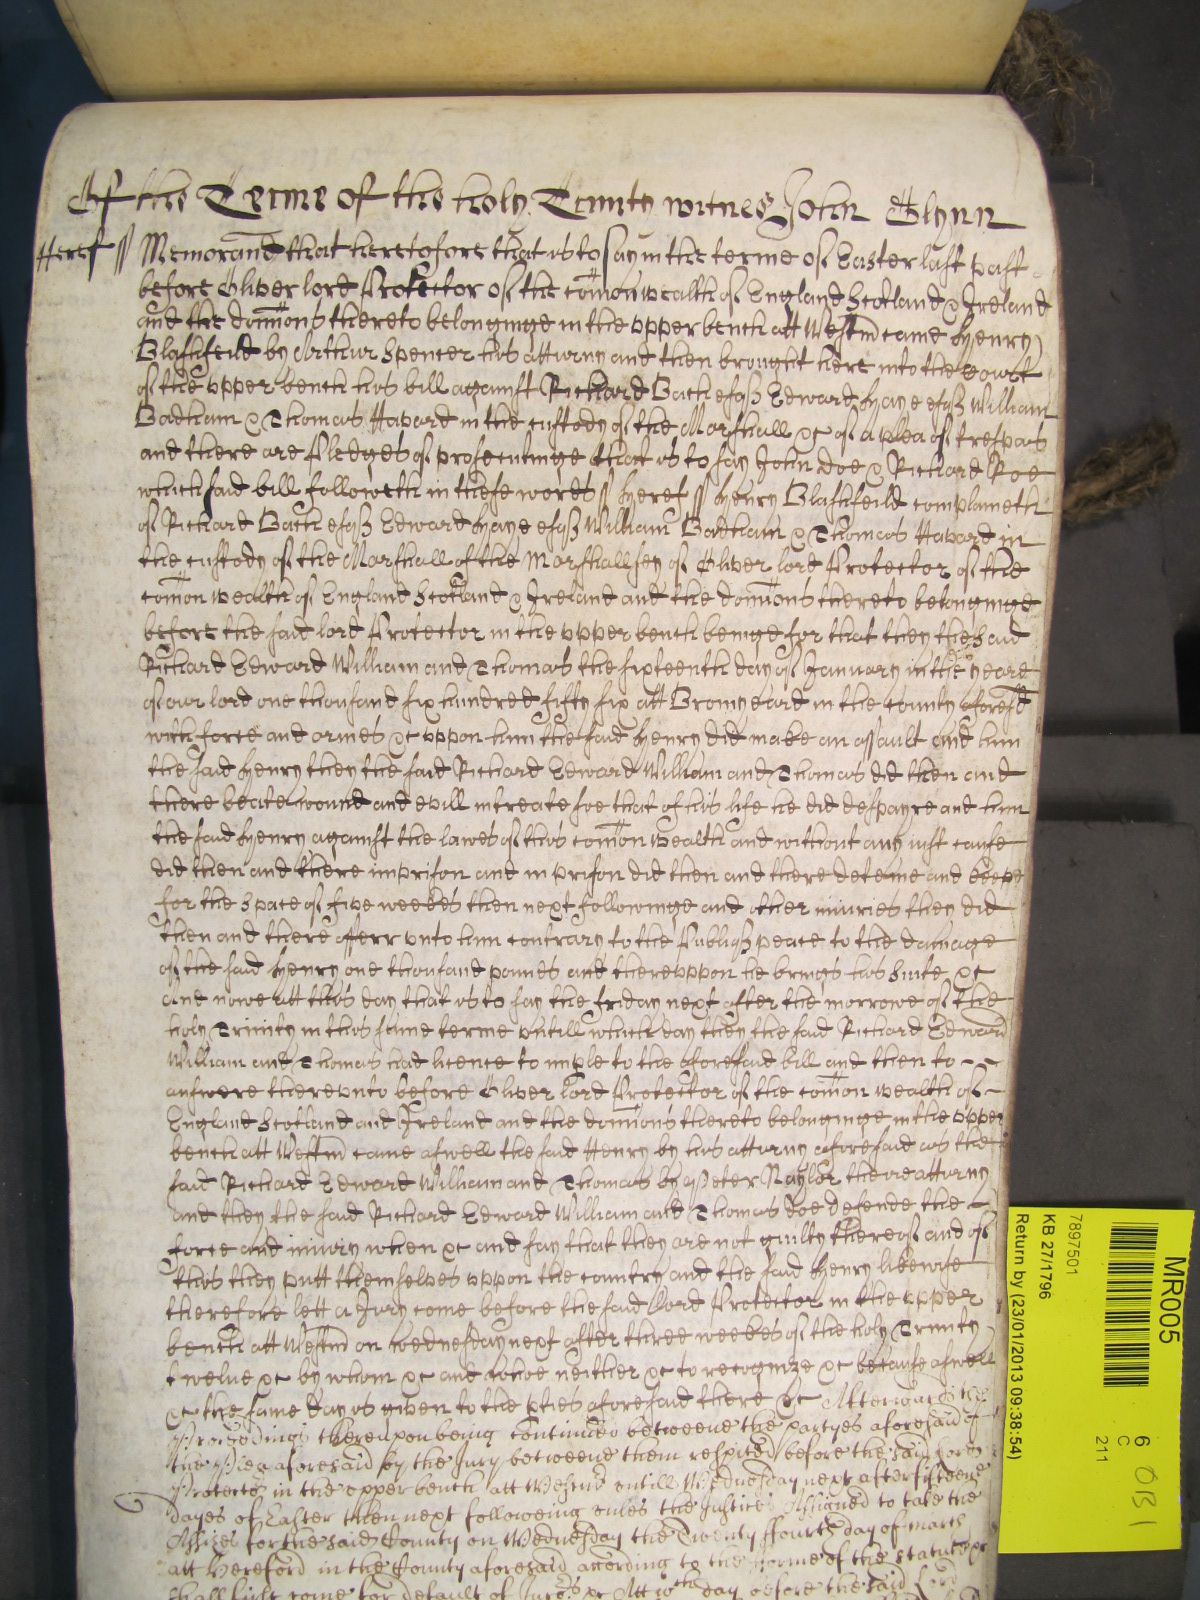 Of the Terme of the holy Trinity witnes John Glynn
Heref ss Memorand that heretofore that is to say in the terme of Easter last past
before Oliver lord Protector of the comon wealth of England Scotland & Ireland
and the dominions thereto belonginge in the upper bench att Westm came Henry
Blashfeild by Arthur Spencer his atturny and then brought here into the Court
of the upper bench his bill against Richard Bach esqr Edward Haye esqr William
Badham & Thomas Havard in the custody of the Marshall &c of a plea of trespas
and there are Pledges of prosecutinge that is to say John Doe & Richard Roe
which said bill followeth in these words ss Heref ss Henry Blashfeild complaineth
of Richard Bach esqr Edward Haye esqr William Badham & Thomas Havard in
the custody of the Marshall of the Marshallsey of Oliver lord Protector of the
comon wealth of England Scotland & Ireland and the dominions thereto belonginge
before the said lord Protector in the upper bench beinge for that they the said
Richard Edward William and Thomas the sixteenth day of January in the yeare
of our lord one thousand six hundred fifty six att Bromyeard in the County aforesd
with force and armes &c uppon him the said Henry did make an assault and him
the said Henry they the said Richard Edward William and Thomas did then and
there beate wound and evill intreate soe that of his life he did despayre and him
the said Henry against the lawes of this comon wealth and without any just cause
did then and there imprison and in prison did then and there deteine and keepe
for the space of five weekes then next followinge and other injuries they did
then and there offerr unto him contrary to the Publiqs peace to the damage
of the said Henry one thousand pounds and thereuppon he brings his suite &c
And nowe att this day that is to say the friday next after the morrowe of the
holy Trinity in this same terme untill which day they the said Richard Edward
William and Thomas had licence to imple to the aforesaid bill and then to
answere thereunto before Oliver lord Protector of the comon wealth of
England Scotland and Ireland and the dominions thereto belonginge in the upper
bench att Westm came aswell the said Henry by his atturny aforesaid as the
said Richard Edward William and Thomas by Peter Naylor theire atturny
and they the said Richard Edward William and Thomas doe defende the
force and iniury when &c and say that they are not guilty thereof and of
this they putt themselves uppon the country and the said Henry likewise
therefore lett a Jury come before the said Lord Protector in the upper
bench att Westm on wednesday next after three weekes of the holy Trinity
twelve &c by whom &c and whoe neither &c to recognize &c because aswell
&c the same day is given to the pties aforesaid there &c Afterwards the
Proceedings thereupon being continued betweene the partyes aforesaid of
the Plea aforesaid by the Jury betweene them respited before the said Lord
Protector in the upper bench att Westmr untill Wednesday next after fifteene
dayes of Easter then next followeing unles the Justices Assigned to take the
Assizes for the said County on Wednesday the Twenty ffourth day of march
att Hereford in the County aforesaid according to the forme of the statute &c
shall first come for default of Jurors &c Att wch day before the said Lord
MR005
7897501
KB 27/1796
Return by (23/01/2013 09:38:54)
6
C
211